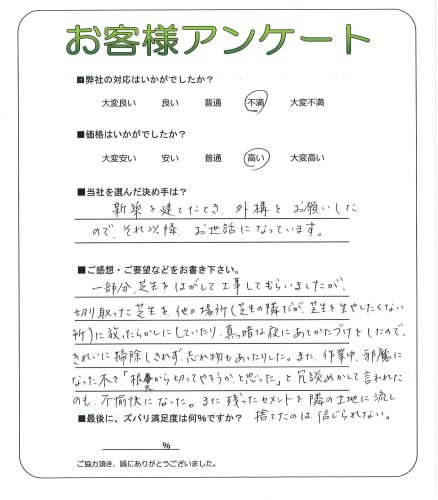 お客様アンケート
■弊社の対応はいかがでしたか?
大変良い 良い 普通 不満 大変不満
■価格はいかがでしたか?
大変安い 安い 普通 高い 大変高い
■当社を選んだ決め手は?
新築を建てたとき、外構をお願いした
ので、それ以降、お世話になっています。
■ご感想・ご要望などをお書き下さい。
一部分、芝生をはがして工事してもらいましたが、
切り取った芝生を、他の場所(芝生の隣だが、芝生を生やしたくない
所)に放ったらかしにしていたり、真っ暗な夜にあとかたづけをしたので、
きれいに掃除しきれず、忘れ物もあったりした。また、作業中、邪魔に
なった木を、「根元から切ってやろうか、と思った」と冗談めかして言われた
のも、不愉快になった。また残ったセメントを隣の土地に流し
捨てたのは信じられない。
■最後に、ズバリ満足度は何%ですか?
%
ご協力頂き、誠にありがとうございました。